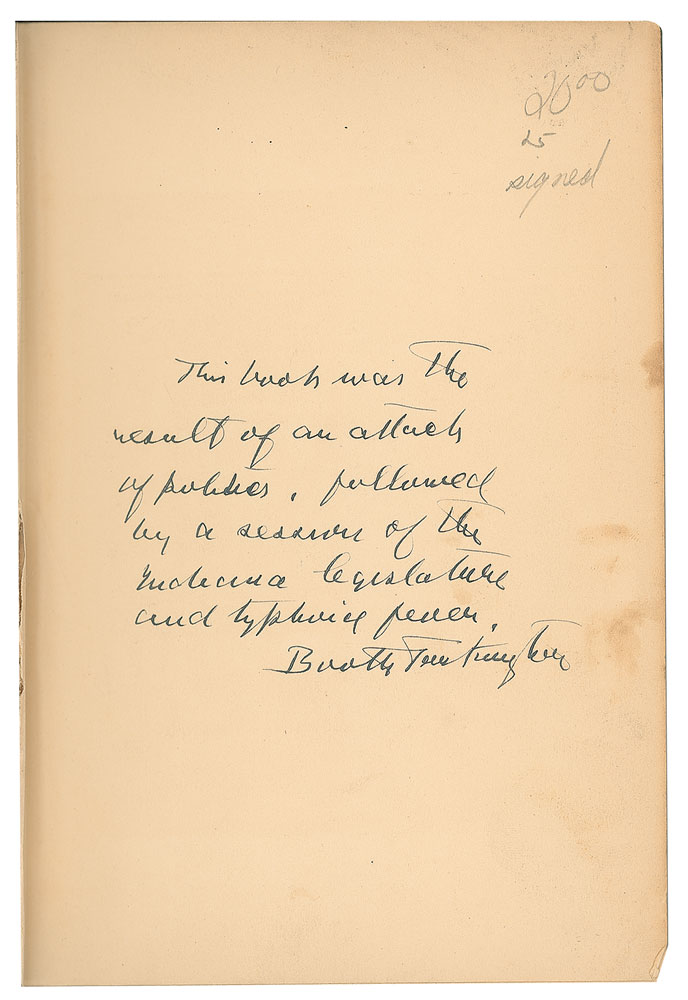 20 00
25
signed
This book was the
result of an attack
of politics, followed
by a session of the
Indiana legislature
and typhoid fever.
Booth Tarkington